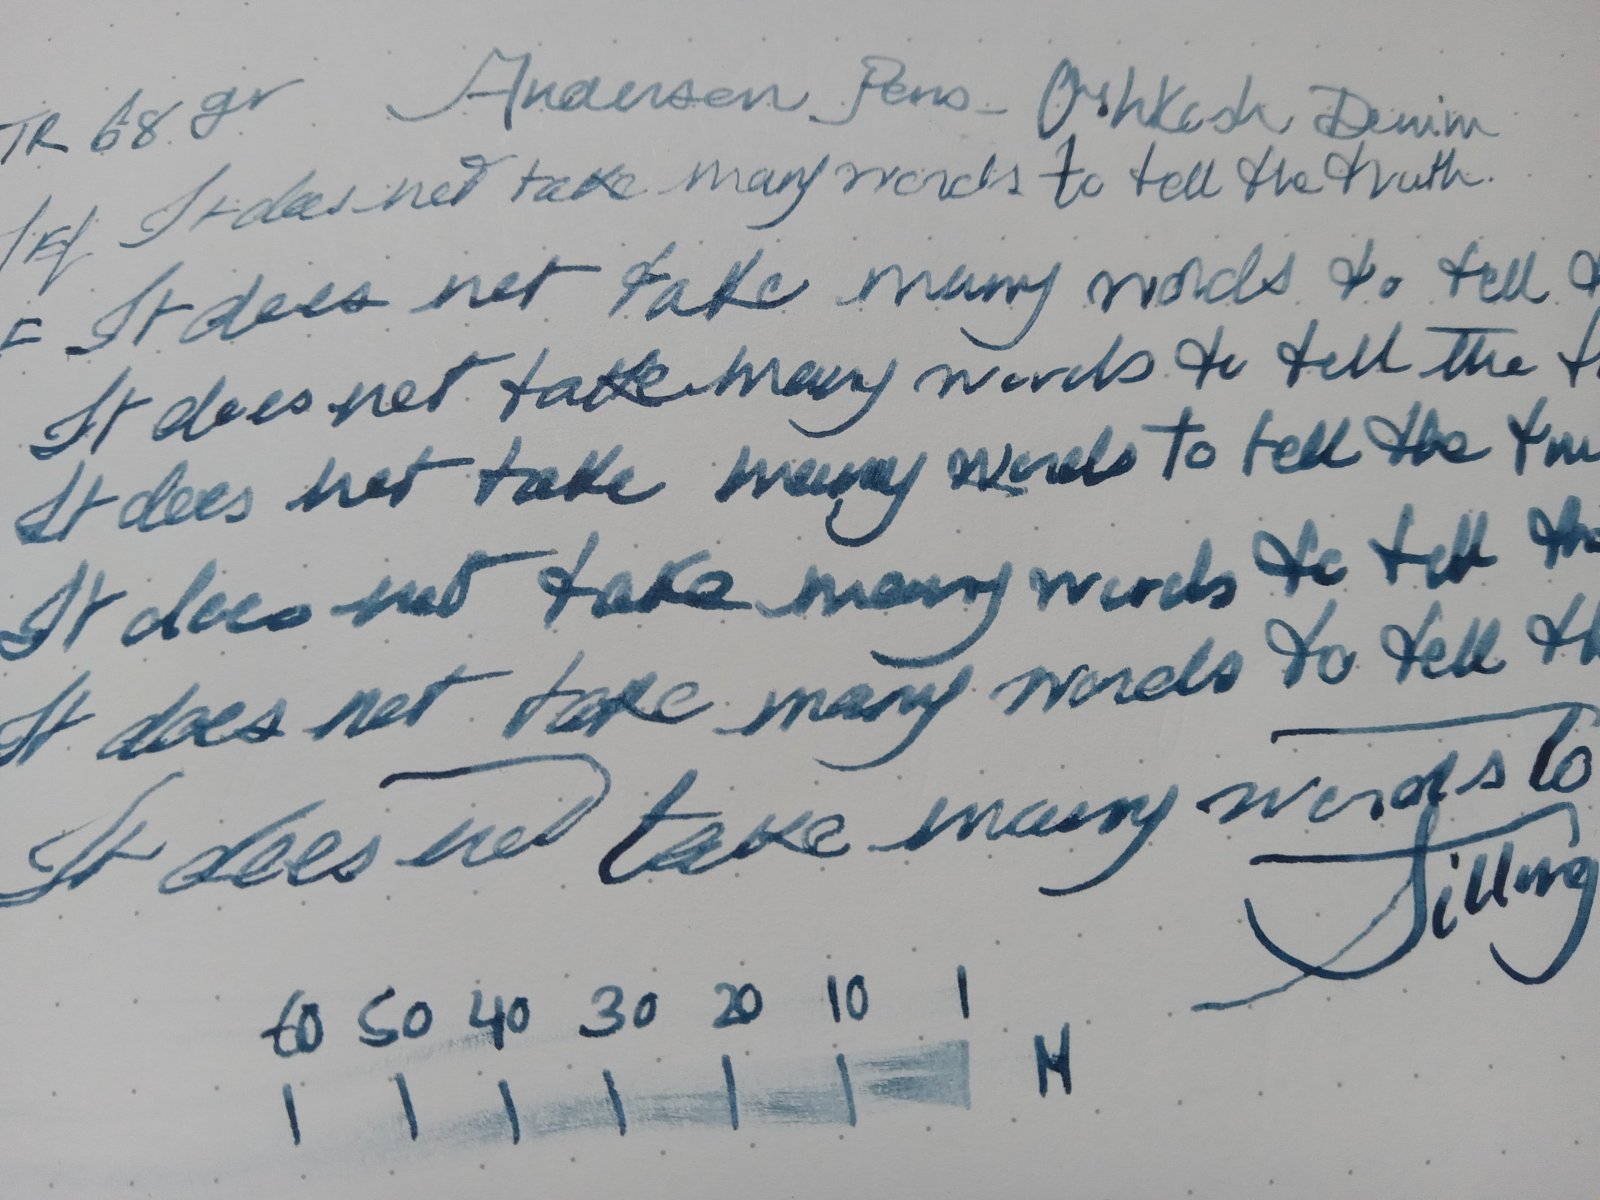 TR 68 gr Andersen Pens - Oshkosh Denim
It does not take many words to tell the truth.
F It does not take many words to tell
It does not take many words to tell the
It does not take many words to tell the
It does not take many words to tell
It does not take many words to tell
It does not take many words to
60 50 40 30 20 10 1
M